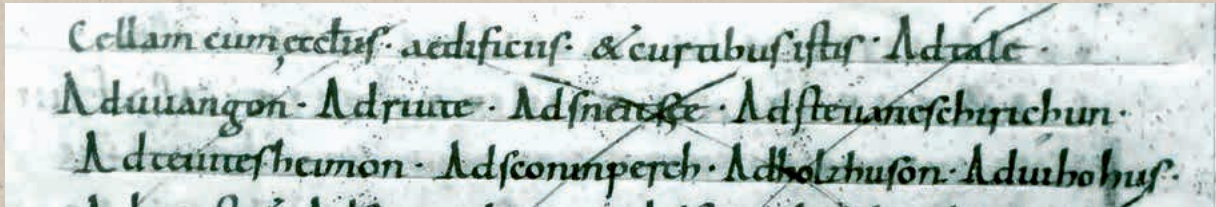 Cellam cum ęcclīis · aedificiis · & curtibus istis · Ad tale ·
Ad uuangon · Ad riute · Ad sneitse · Ad steuaneschirichun ·
Ad teuitesheimon · Ad sconinperch · Ad holzhuson · Ad uuihohus ·